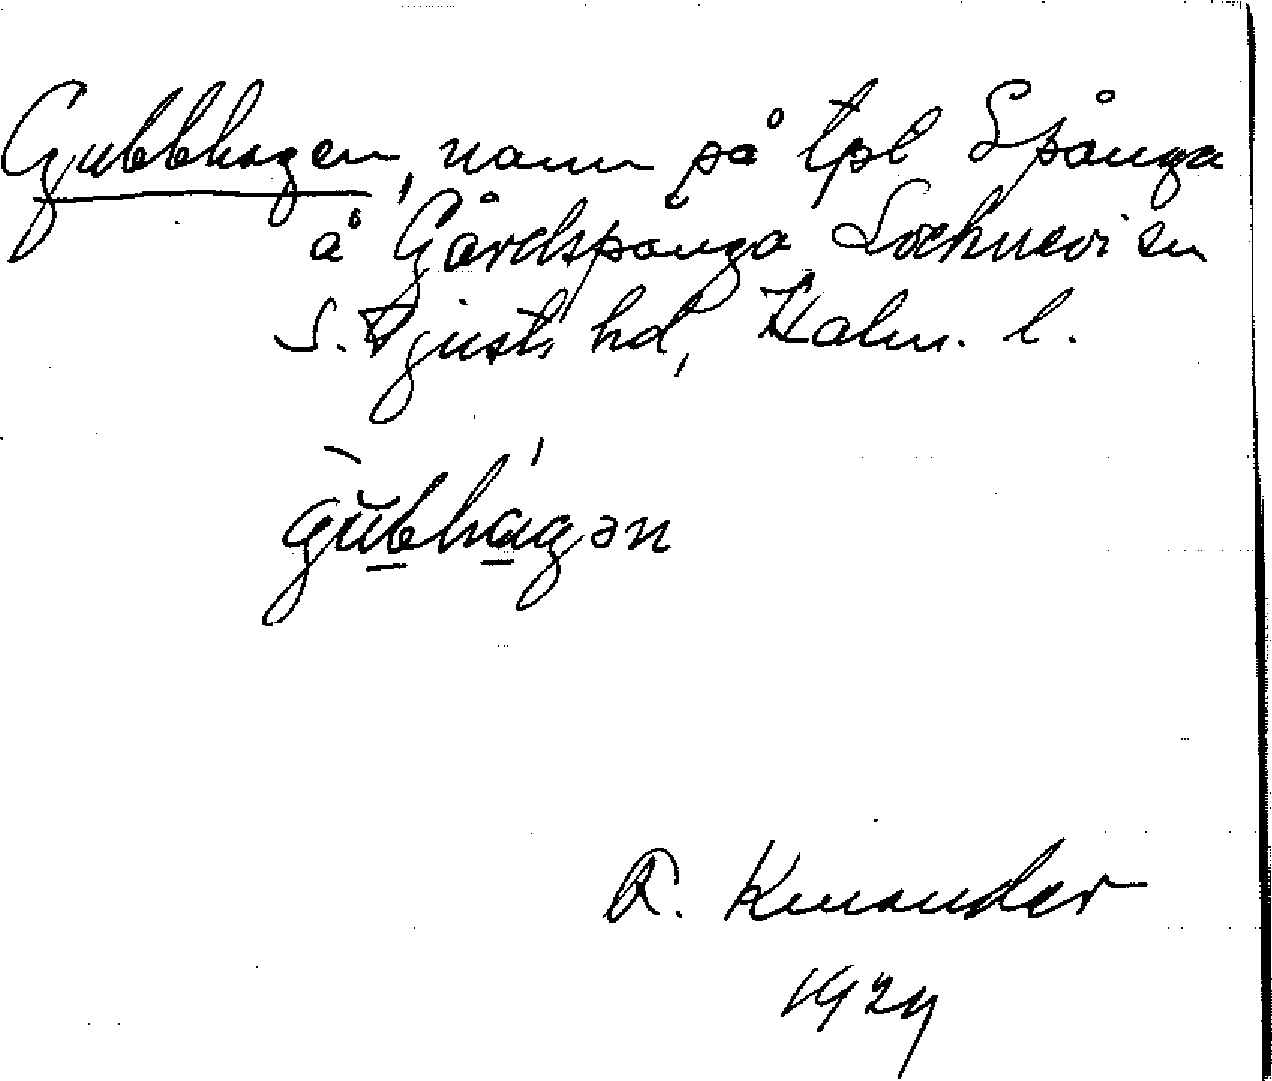 Gubbhagen, namn på tpl Spånga
å Gårdspånga Locknevi sn
S. Tjusts hd, Kalm. l.
gŭbhagən
R. Kinander
1927